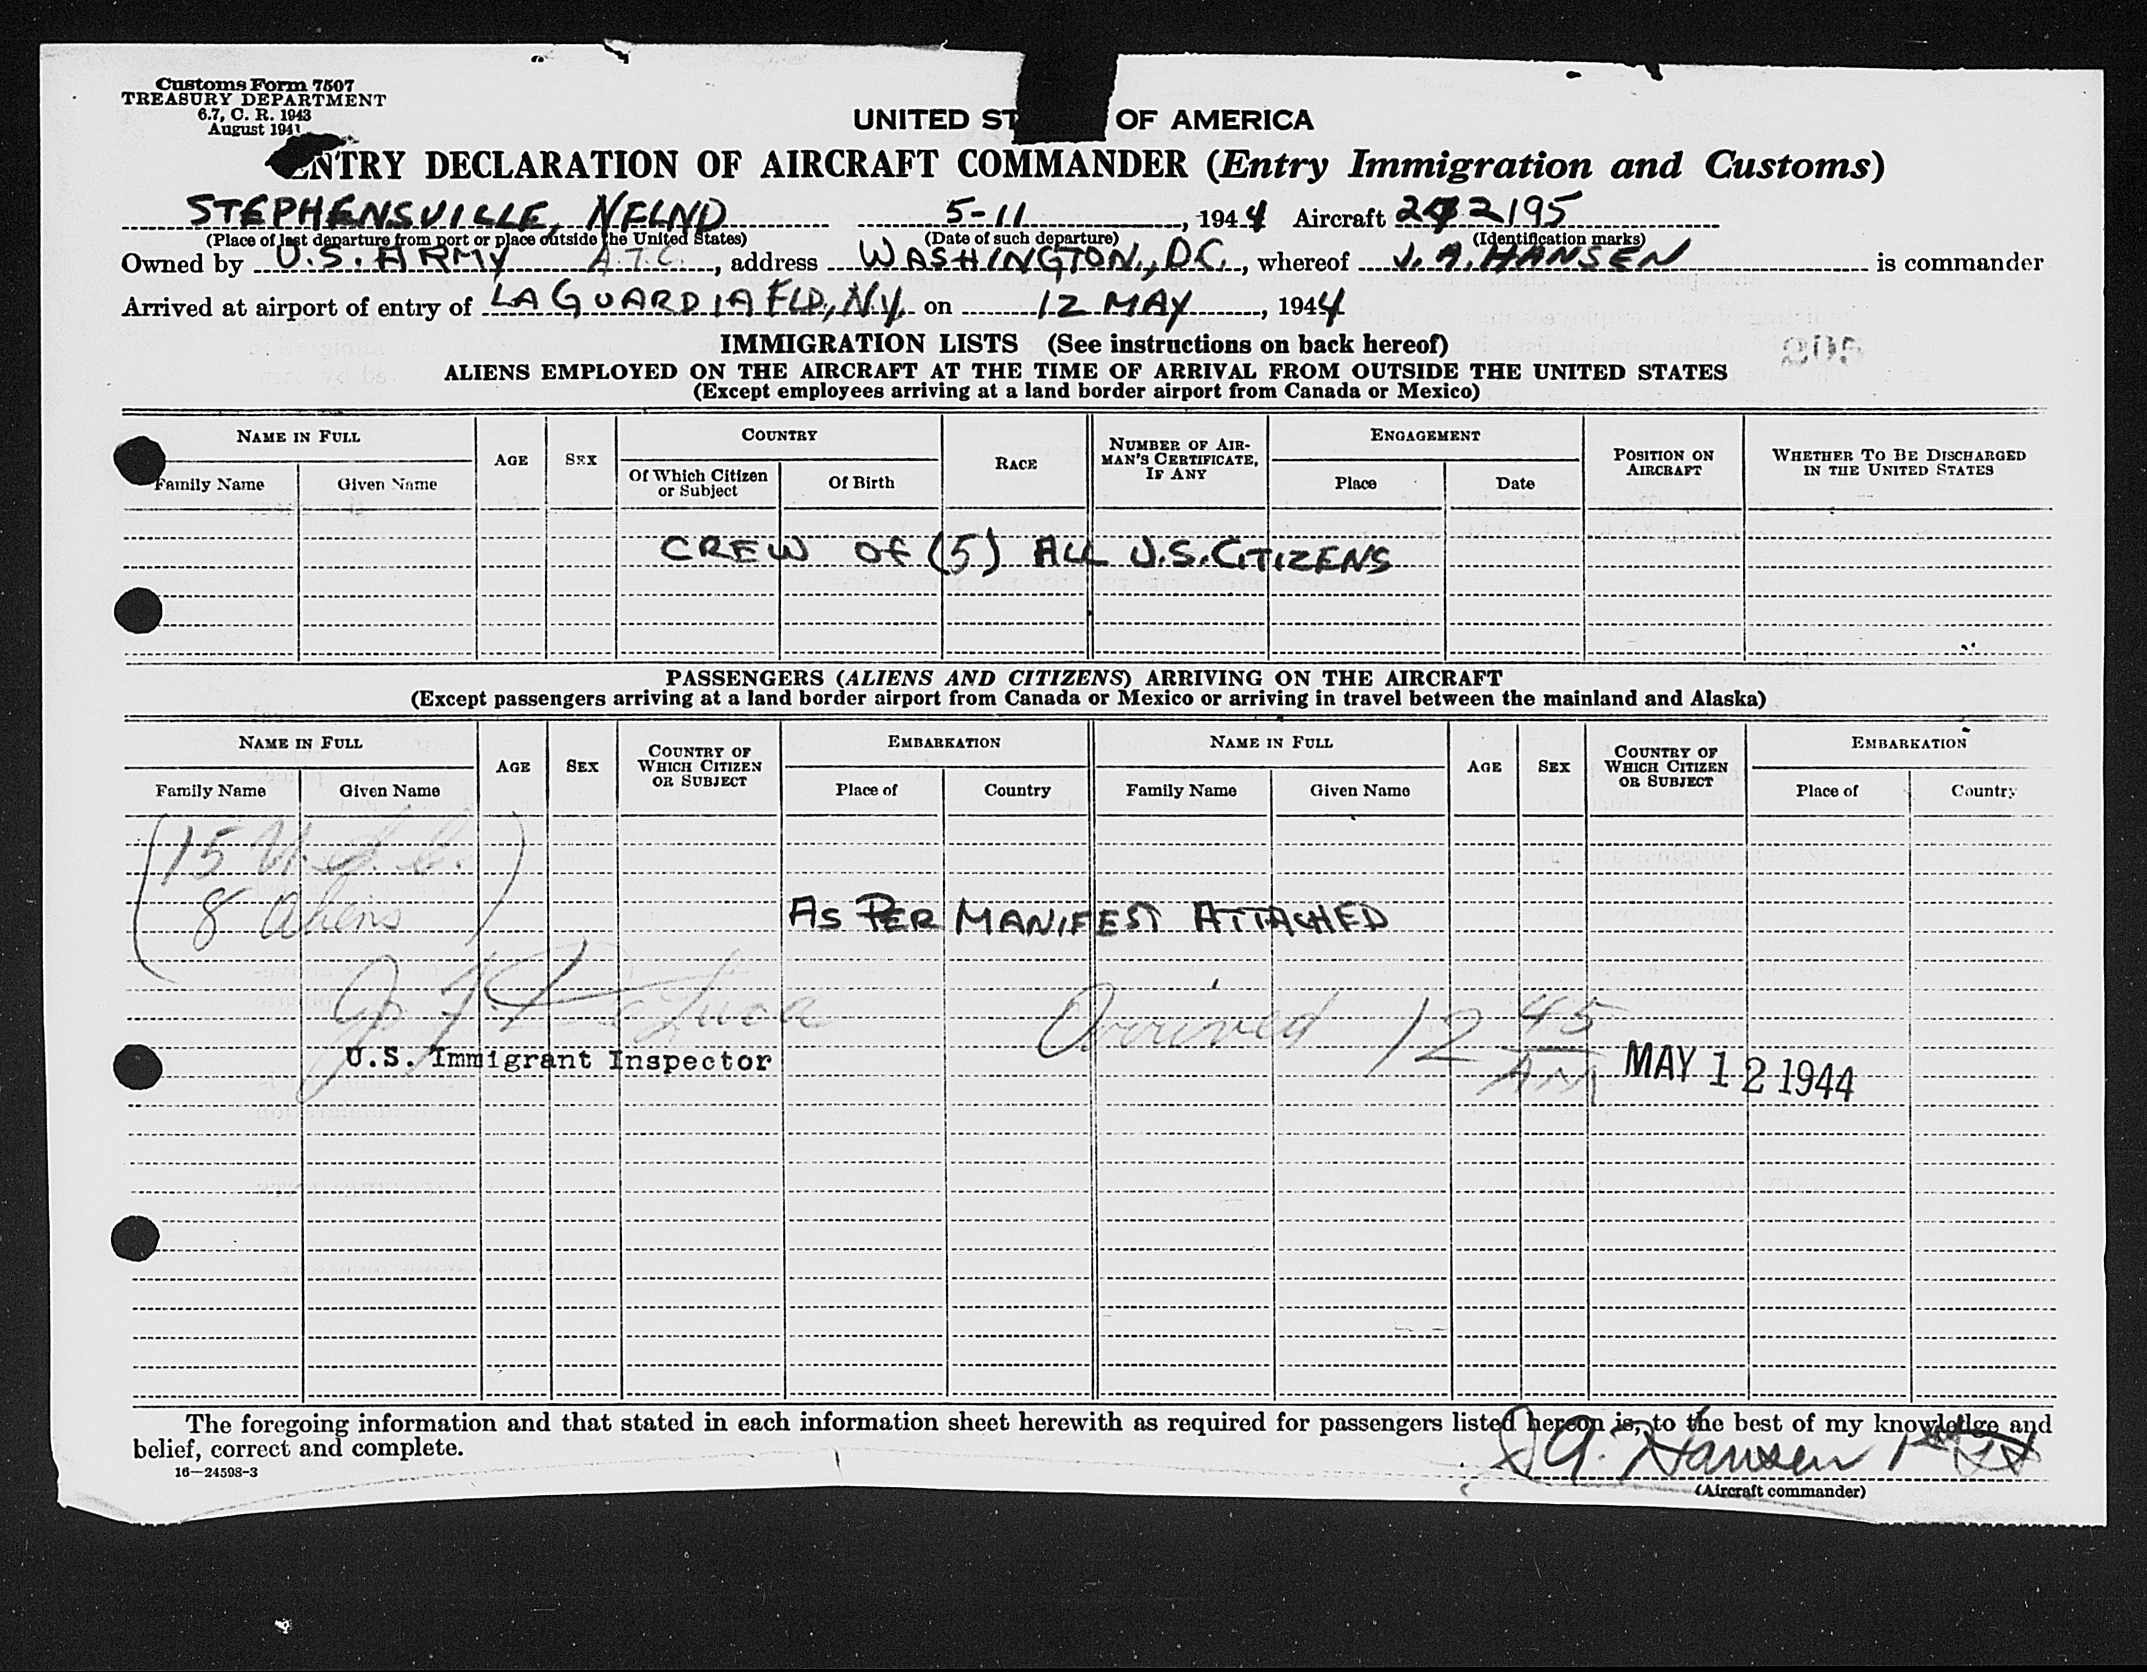 Customs Form 7507
TREASURY DEPARTMENT
6.7, C. R. 1943
August 1941
UNITED ST OF AMERICA
NTRY DECLARATION OF AIRCRAFT COMMANDER (Entry Immigration and Customs)
STEPHENSVILLE, NFLND 5-11, 1944 Aircraft 2195
(Place of last departure from port or place outside the United States) (Date of such departure) (Identification marks)
Owned by U.S. ARMY A.T.C., address WASHINGTON, D.C., whereof J. A. HANSEN is commander
Arrived at airport of entry of LA GUARDIA FLD, N.Y. on 12 MAY, 1944
IMMIGRATION LISTS (See instructions on back hereof)
ALIENS EMPLOYED ON THE AIRCRAFT AT THE TIME OF ARRIVAL FROM OUTSIDE THE UNITED STATES
(Except employees arriving at a land border airport from Canada or Mexico)
NAME IN FULL AGE SEX COUNTRY RACE NUMBER OF AIRMAN'S CERTIFICATE, IF ANY ENGAGEMENT POSITION ON AIRCRAFT WHETHER TO BE DISCHARGED IN THE UNITED STATES
Family Name Given Name Of Which Citizen or Subject Of Birth Place Date
CREW OF (5) ALL U.S. CITIZENS
PASSENGERS (ALIENS AND CITIZENS) ARRIVING ON THE AIRCRAFT
(Except passengers arriving at a land border airport from Canada or Mexico or arriving in travel between the mainland and Alaska)
NAME IN FULL AGE SEX COUNTRY OF WHICH CITIZEN OR SUBJECT EMBARKATION NAME IN FULL AGE SEX COUNTRY OF WHICH CITIZEN OR SUBJECT EMBARKATION
Family Name Given Name Place of Country Family Name Given Name Place of Country
(15 U.S.C.
8 Aliens)
AS PER MANIFEST ATTACHED
Arrived 12 45 AM
U.S. Immigrant Inspector
MAY 12 1944
The foregoing information and that stated in each information sheet herewith as required for passengers listed hereon is, to the best of my knowledge and
belief, correct and complete.
J A. Hansen 1st Lt
16—24598-3
(Aircraft commander)